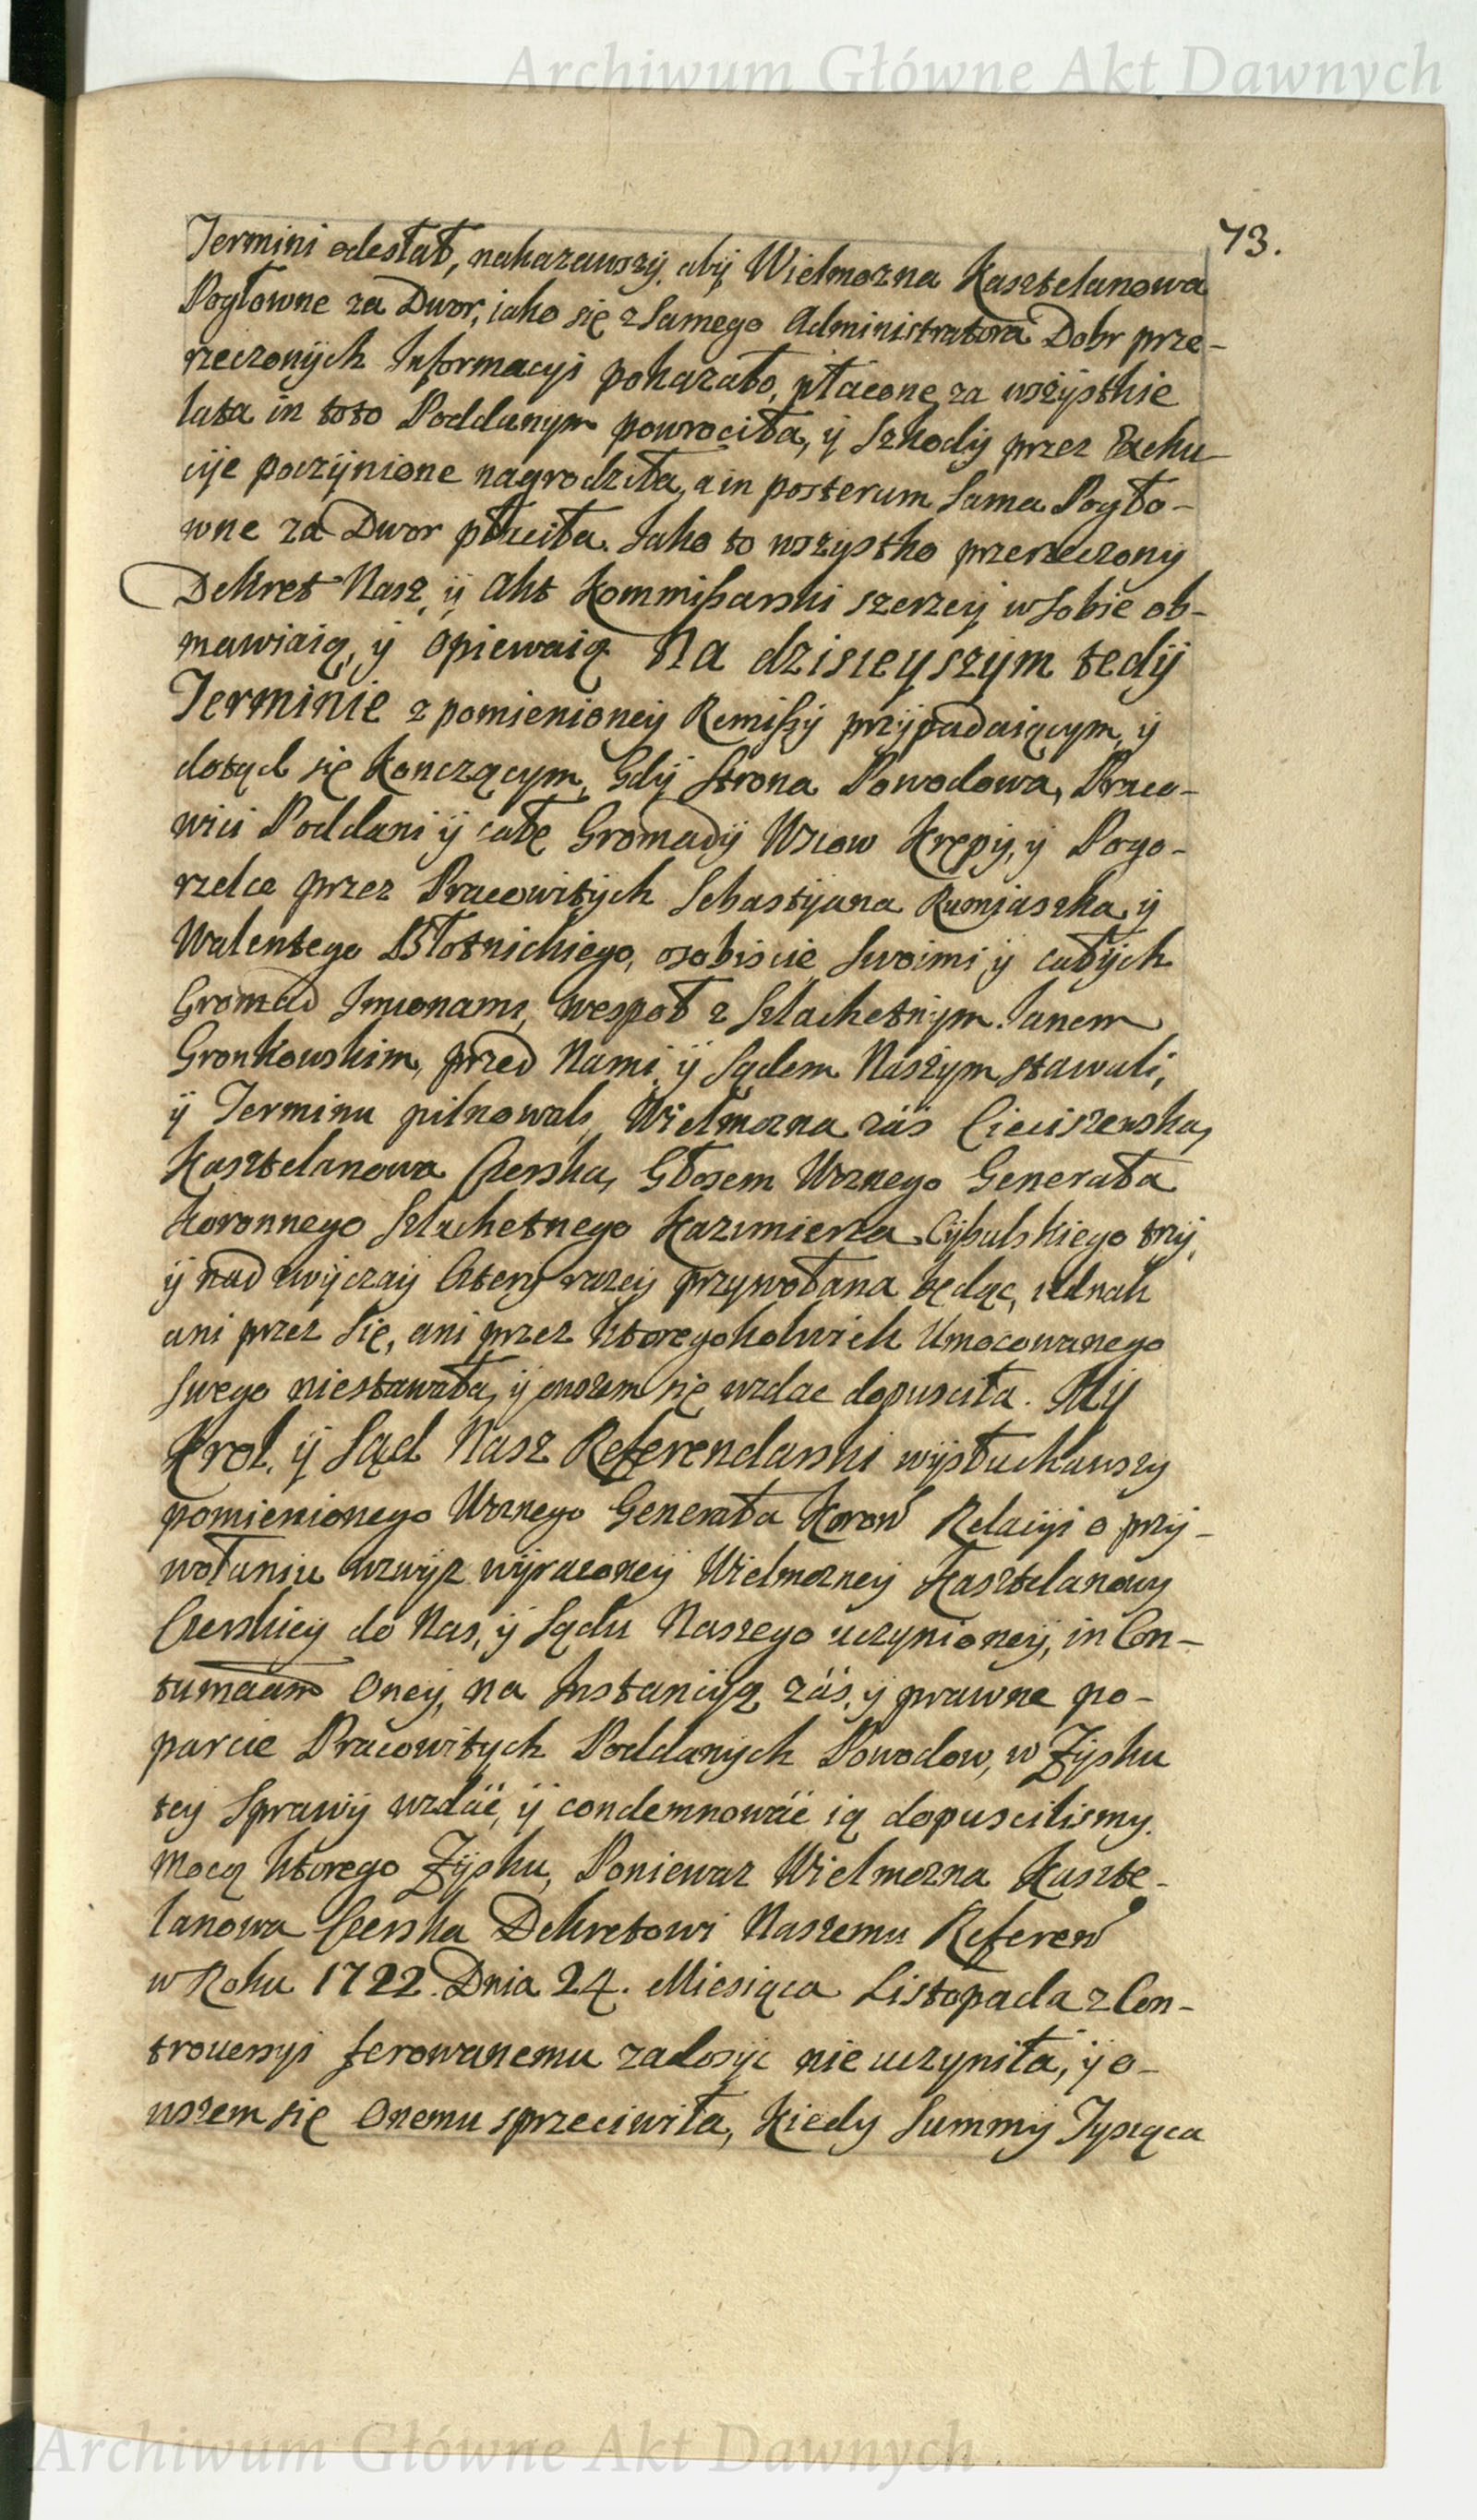 Archiwum Główne Akt Dawnych
73.
Termini odesłał, nakazawszÿ, abÿ Wielmozna Kasztelanowa
Pogłowne za Dwor, iako się z Samego Administratora Dobr prze-
rzeczonÿch Informacyi pokazało, płacone za wszÿstkie
lata in toto Poddanym powrociła, ÿ Szkodÿ przez Exeku-
cije poczÿnione nagrodziła, a in posterum Sama Pogło-
wne za Dwor płaciła. Jako to wszystko przerzeczony
Dekret Nasz, ÿ Akt Kommissarski szerzeÿ w Sobie ob-
mawiaią, ÿ opiewaią Na dzisieyszÿm tedÿ
Terminie z pomienioneÿ Remissÿ przÿpadaiącym, ÿ
dotąd się Konczącym, Gdÿ Strona Powodowa, Praco-
wici Poddani ÿ całe Gromadÿ Wsiow Krępÿ, ÿ Pogo-
rzelca przez Pracowitÿch Sebastÿana Rumiaszka, ÿ
Walentego Błotnickiego, osobiscie Swoimi ÿ całÿch
Gromad Imionami, wespoł z Szlachetnÿm Janem
Gronkowskim, przed Nami, ÿ Sądem Naszÿm stawali,
ÿ Terminu pilnowali, Wielmozna záś Cieciszewska,
Kasztelanowa Czerska, Głosem Woznego Generała
Koronnego Szlachetnego Kazimierza Cÿbulskiego trzÿ,
ÿ nad zwÿczaÿ czterÿ razeÿ przywołana będąc, iednak
ani przez Się, ani przez ktoregokolwiek Umocowanego
Swego niestawała, ÿ owszem się wzdac dopusciła. Mÿ
Krol, ÿ Sąd Nasz Referendarski wÿsłuchawszy
pomienionego Woznego Generała Koron Relacÿi o przÿ-
wołaniu wzwÿz wÿrazoneÿ Wielmozneÿ Kasztelanowy
Czerskieÿ do Nas, ÿ Sądu Naszego uczynioneÿ, in Con-
tumaciam Oneÿ, na Instancÿą záś, ÿ prawne po-
parcie Pracowitych Poddanÿch Powodow, w Zÿsku
teÿ Sprawÿ wzdáć, ÿ condemnowáć ią dopuscilismy.
Mocą ktorego Zÿsku, Poniewaz Wielmozna Kaszte-
lanowa Czerska Dekretowi Naszemu Referen
w Roku 1722. Dnia 24. Miesiąca Listopada z Con-
trowersyi ferowanemu zadosÿc nie uczyniła, ÿ o-
wszem się Onemu sprzeciwiła, Kiedy Summÿ Tysiąca
Archiwum Główne Akt Dawnych